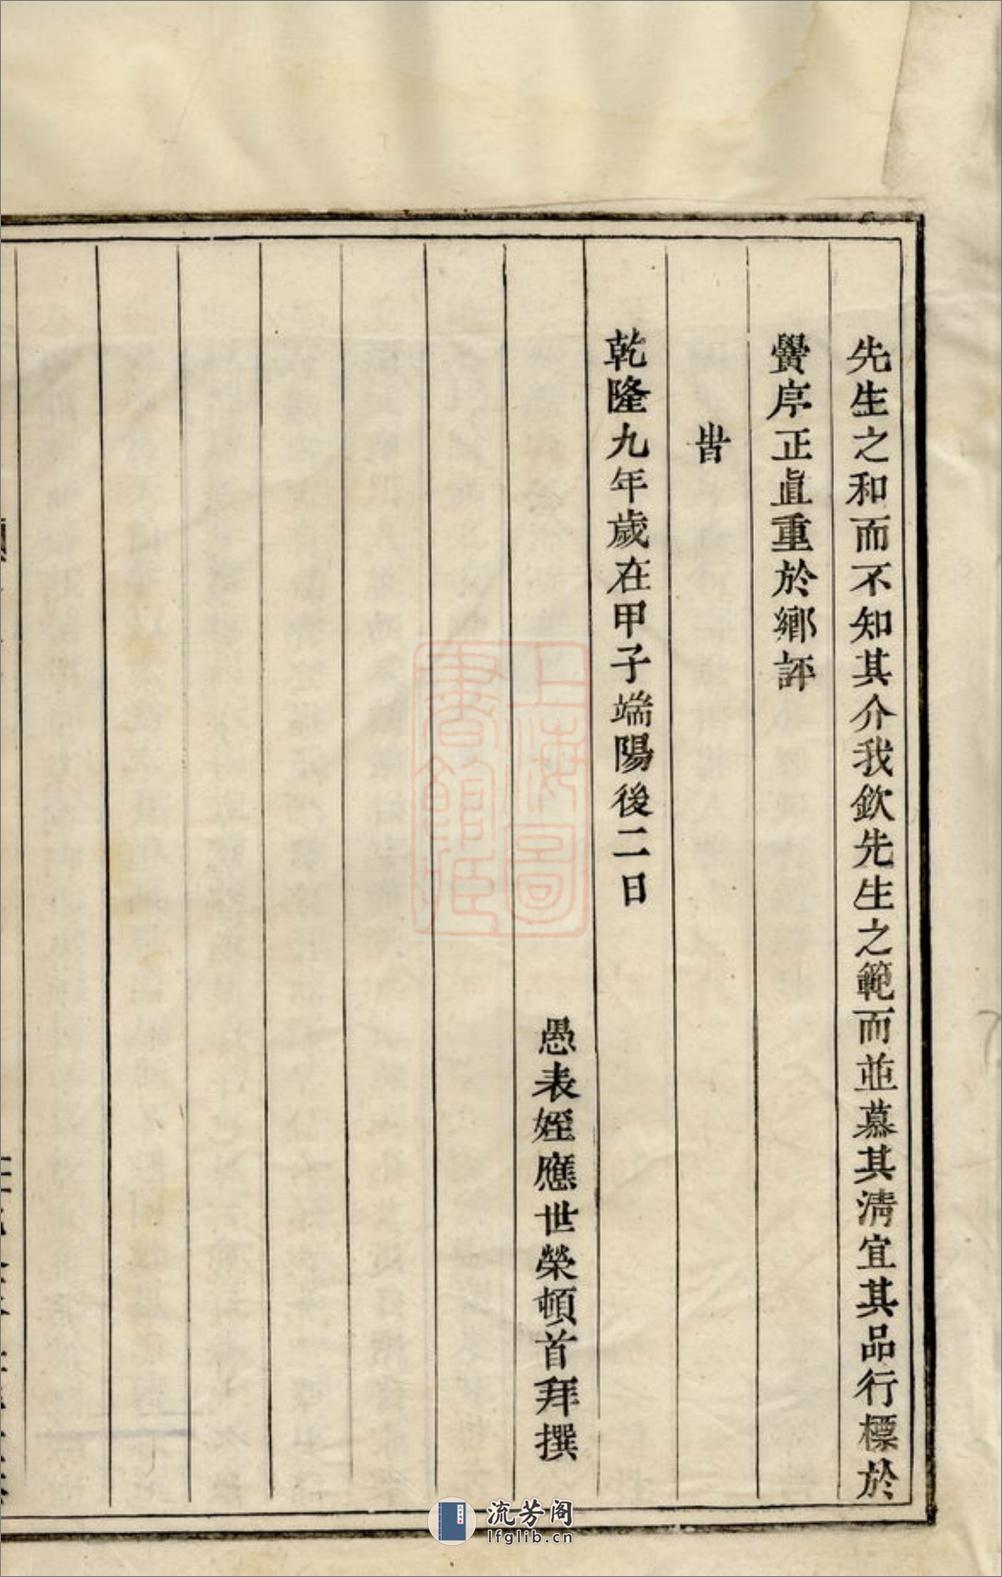 先生之和而不知其介我欽先生之範而並慕其淸宜其品行標於
黌序正直重於鄉評
旹
乾隆九年歲在甲子端陽後二日
愚表姪應世榮頓首拜撰
上海圖書館藏
流芳阁
lfglib.cn